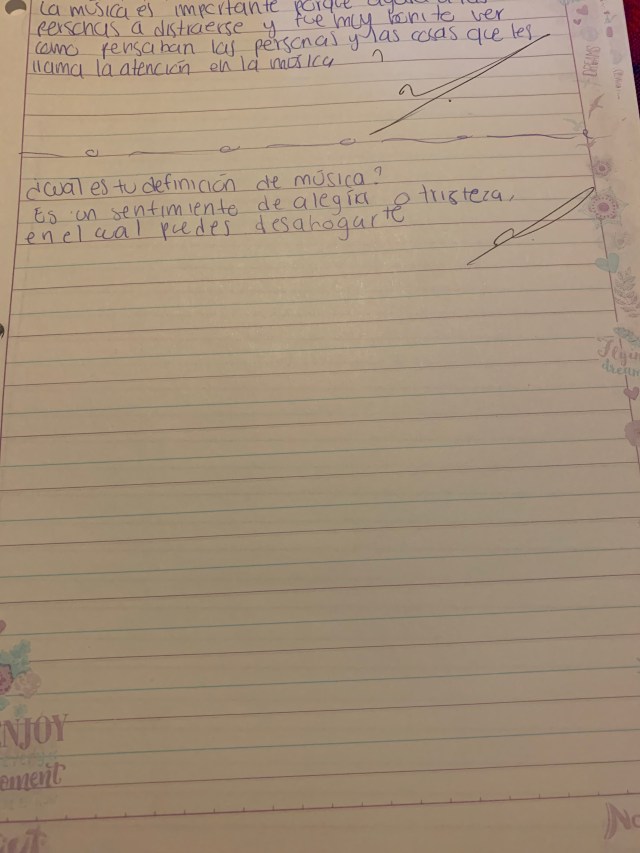 La música es importante porque ayuda a las
personas a distraerse y fue muy bonito ver
como pensaban las personas y las cosas que les
llama la atención en la música
¿Cual es tu definición de música?
Es un sentimiento de alegria o tristeza,
en el cual puedes desahogarte
DREAMS
Flying
dream
ENJOY
moment